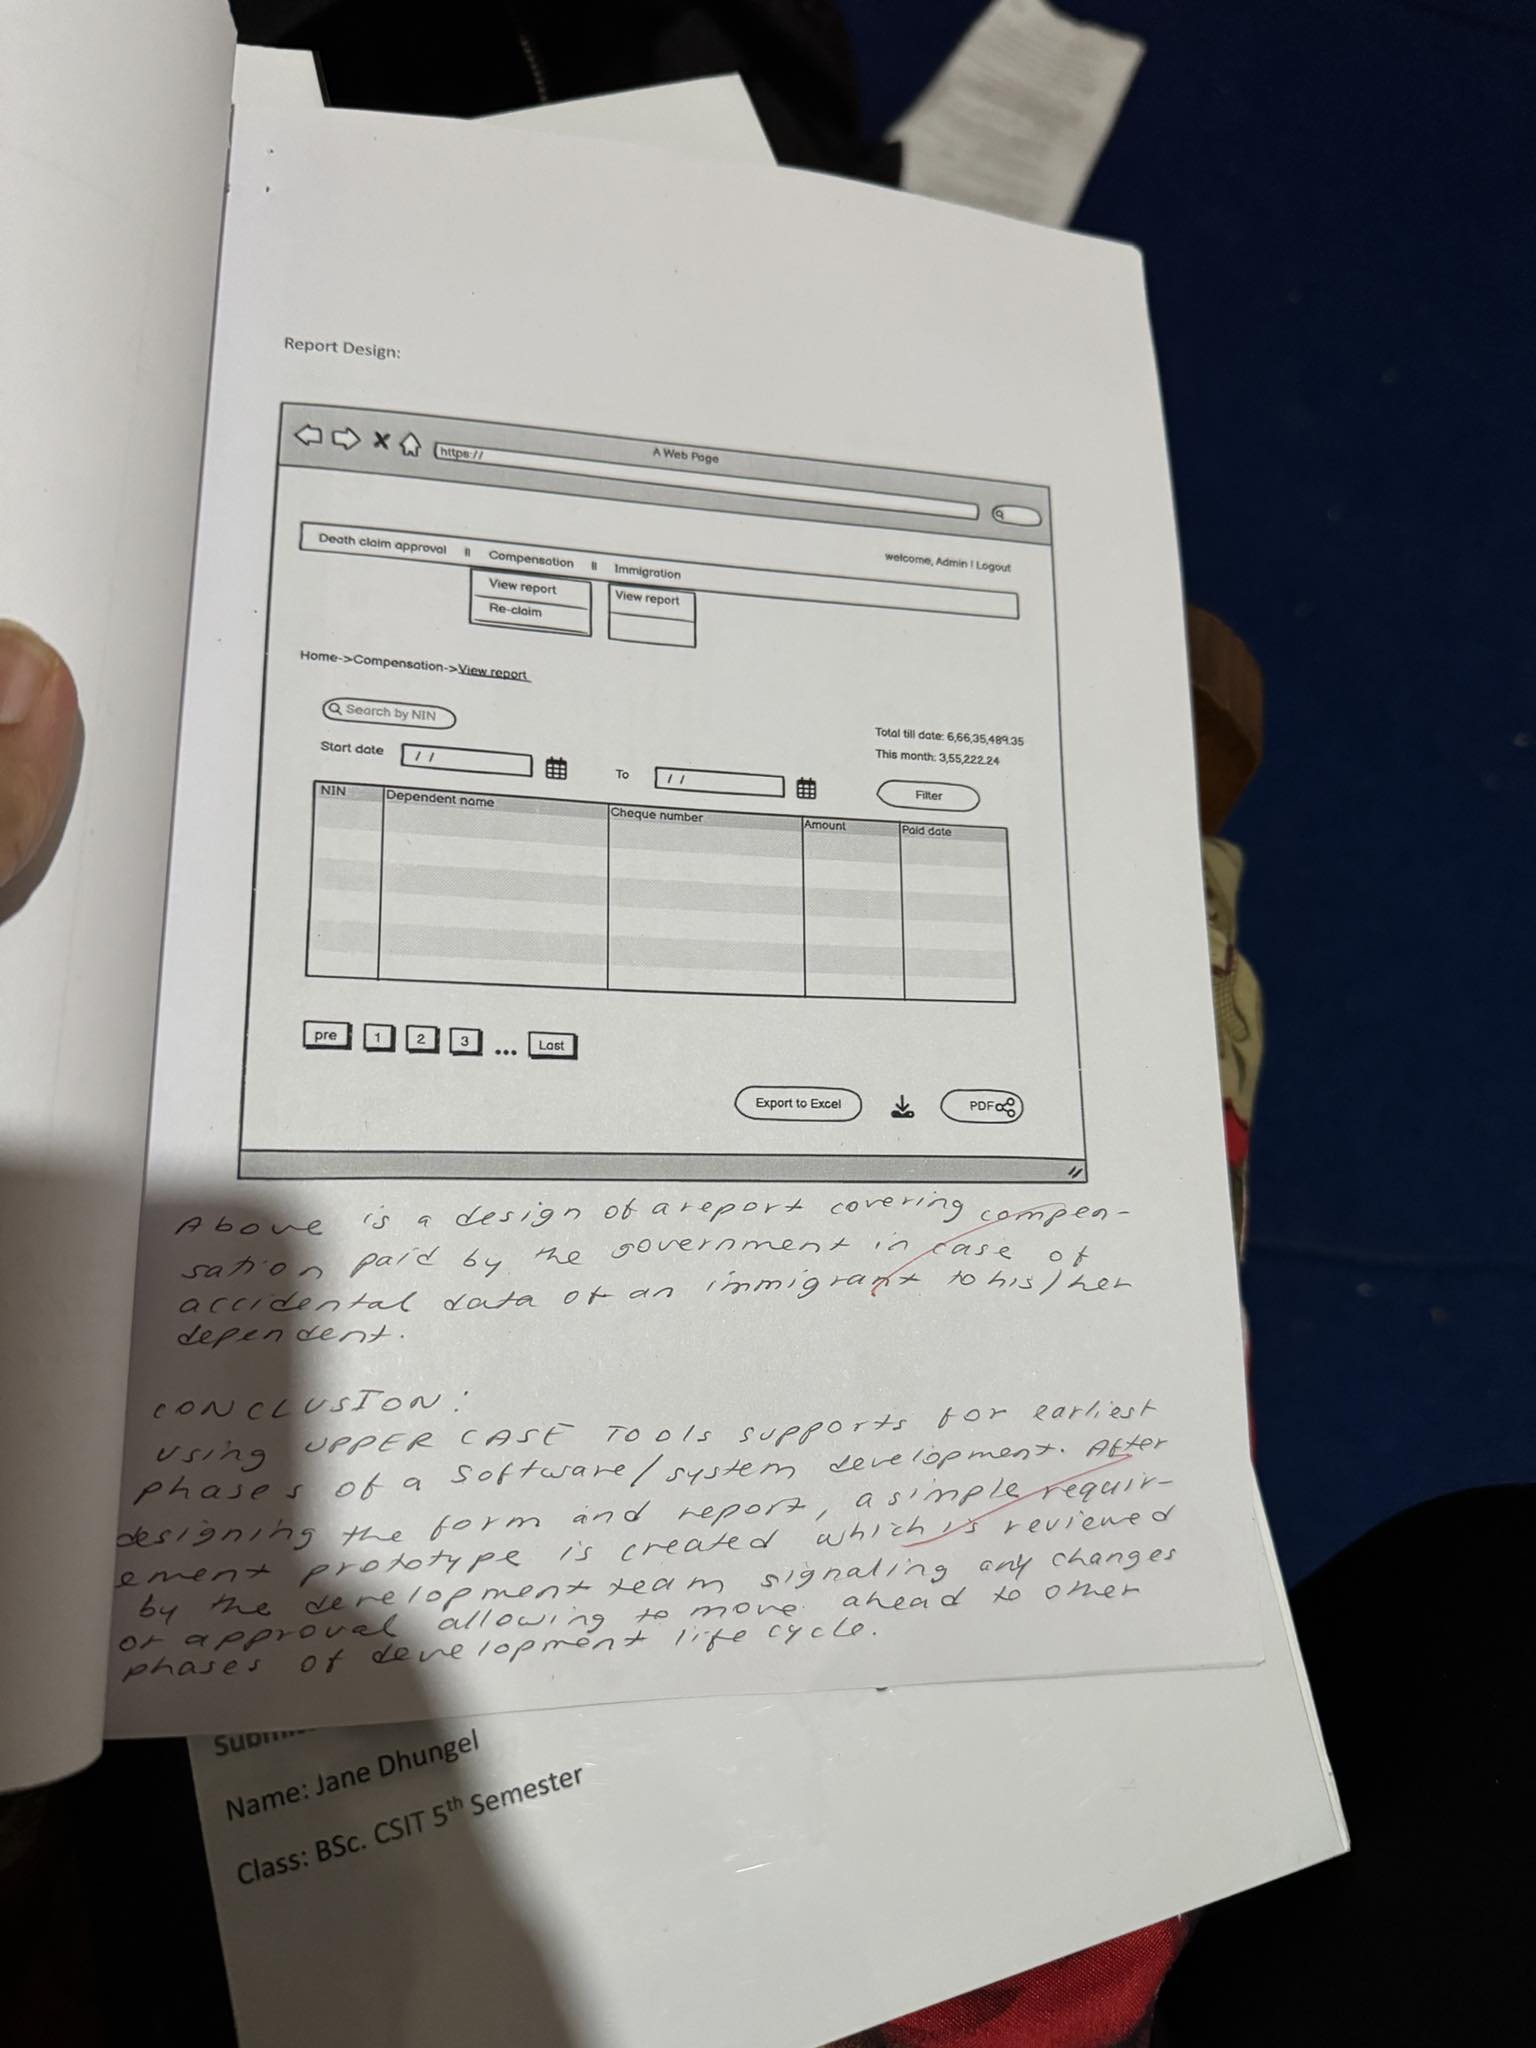 Report Design:
A Web Page
https://
welcome, Admin ! Logout
Death claim approval || Compensation || Immigration
View report
Re-claim
View report
Home->Compensation->View report
Search by NIN
Total till date: 6,66,35,489.35
This month: 3,55,222.24
Start date / / To / /
Filter
NIN Dependent name Cheque number Amount Paid date
pre 1 2 3 ... Last
Export to Excel PDF
Above is a design of a report covering compen-
sation paid by the government in case of
accidental data of an immigrant to his/her
dependent.
CONCLUSION:
Using UPPER CASE TOOls supports for earliest
phases of a Software/system development. After
designing the form and report, a simple requir-
ement prototype is created which is reviewed
by the development team signaling any changes
or approval allowing to move ahead to other
phases of development life cycle.
Name: Jane Dhungel
Class: BSc. CSIT 5th Semester